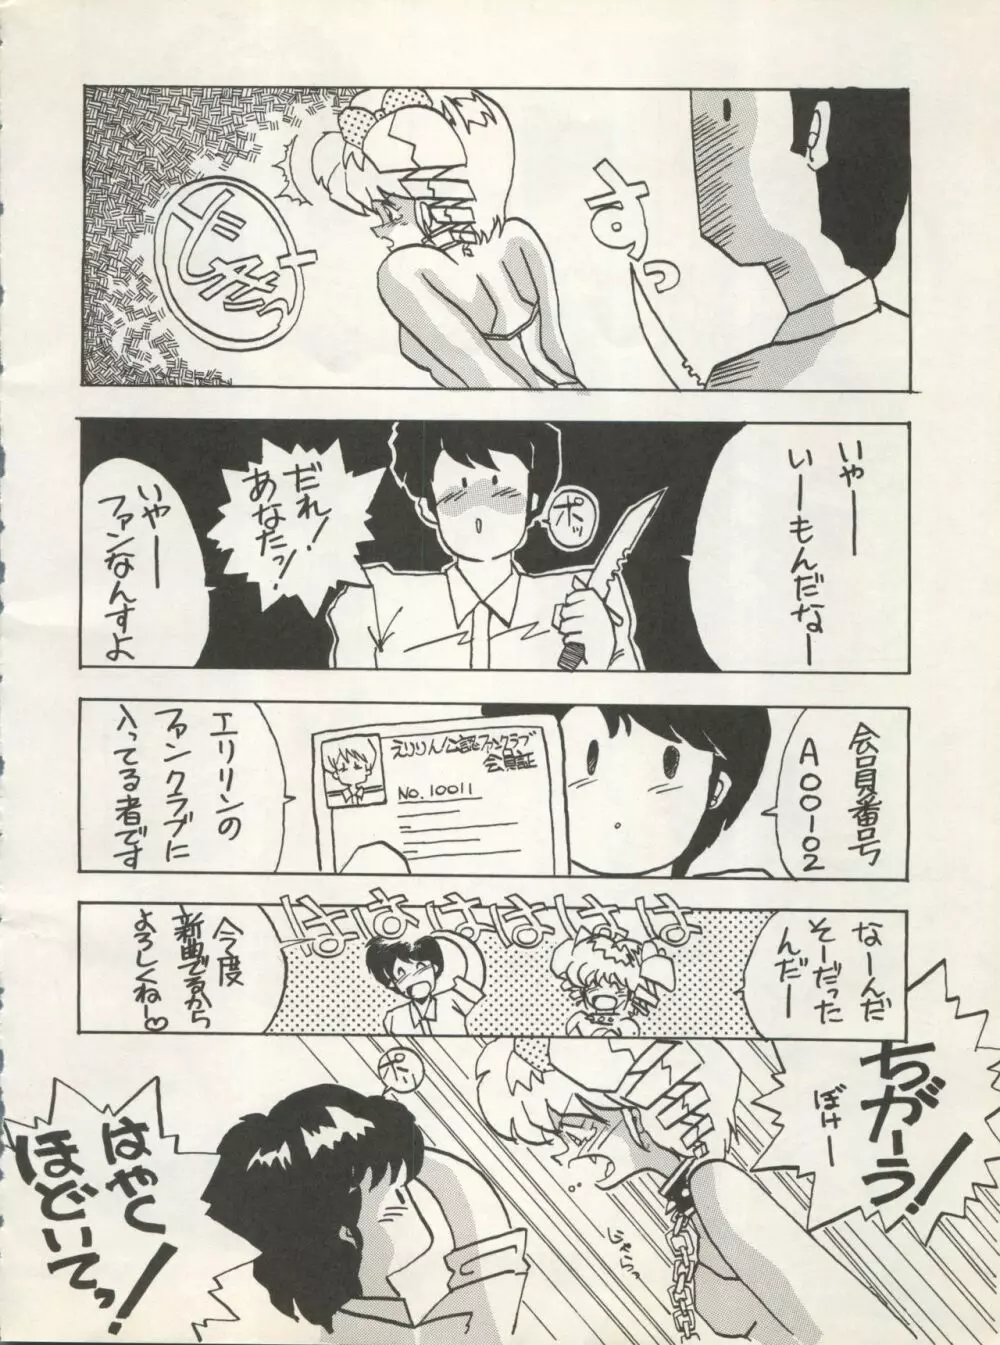 すっ
いやー
いーもんだなー
ポッ
だれ!
あなたっ!
いやー
ファンなんすよ
会員番号
A00102
えりりん公認ファンクラブ
会員証
No. 10011
エリリンの
ファンクラブに
入ってる者です
なーんだ
そーだった
んだー
はははははは
今度
新曲でるから
よろしくねー♡
ちがーう!
ぼけー
じゃらっ
ポッ
はやく
ほどいてっ!